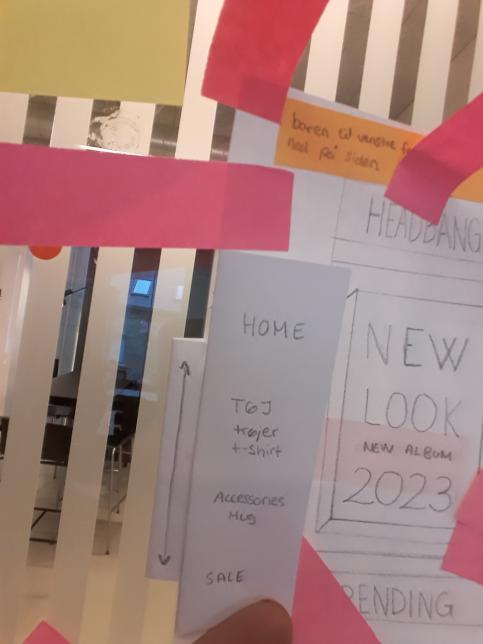 baren til venstre
ned på siden
HEADBANG
HOME
TØJ
trøjer
t-shirt
Accessories
Hug
SALE
NEW
LOOK
NEW ALBUM
2023
RENDING